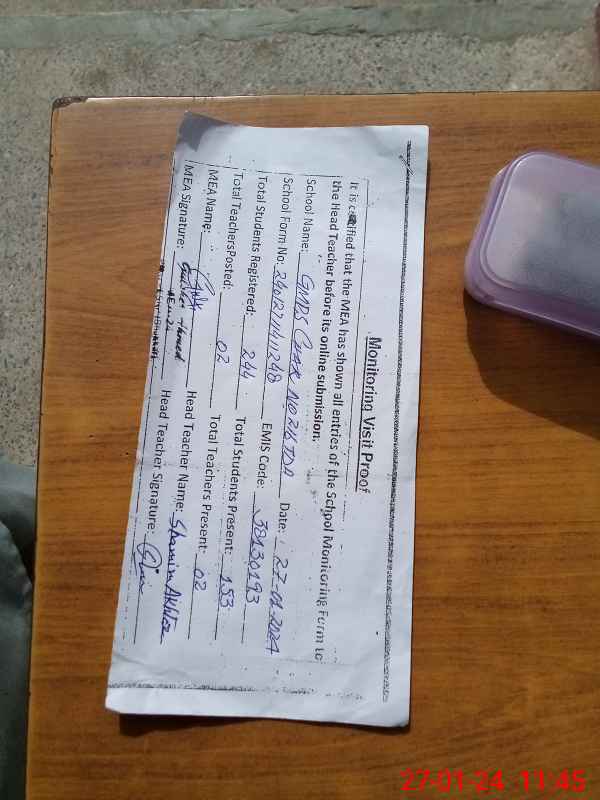 Monitoring Visit Proof
It is certified that the MEA has shown all entries of the School Monitoring Form to
the Head Teacher before its online submission.
School Name: GMPS Date: 27-01-2024
School Form No: EMIS Code: 38130193
Total Students Registered: 244 Total Students Present: 153
Total Teachers Posted: 02 Total Teachers Present: 02
MEA Name: Head Teacher Name: Shamim Akhter
MEA Signature: Head Teacher Signature:
27-01-24 11:45